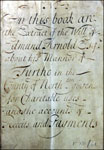 In this book are
the Extract of the Will of
Edmund Arnold Esqr
about his Mannor of
Furtho in the
County of North
for Charitable uses
and the accounts of
Receits and Payments